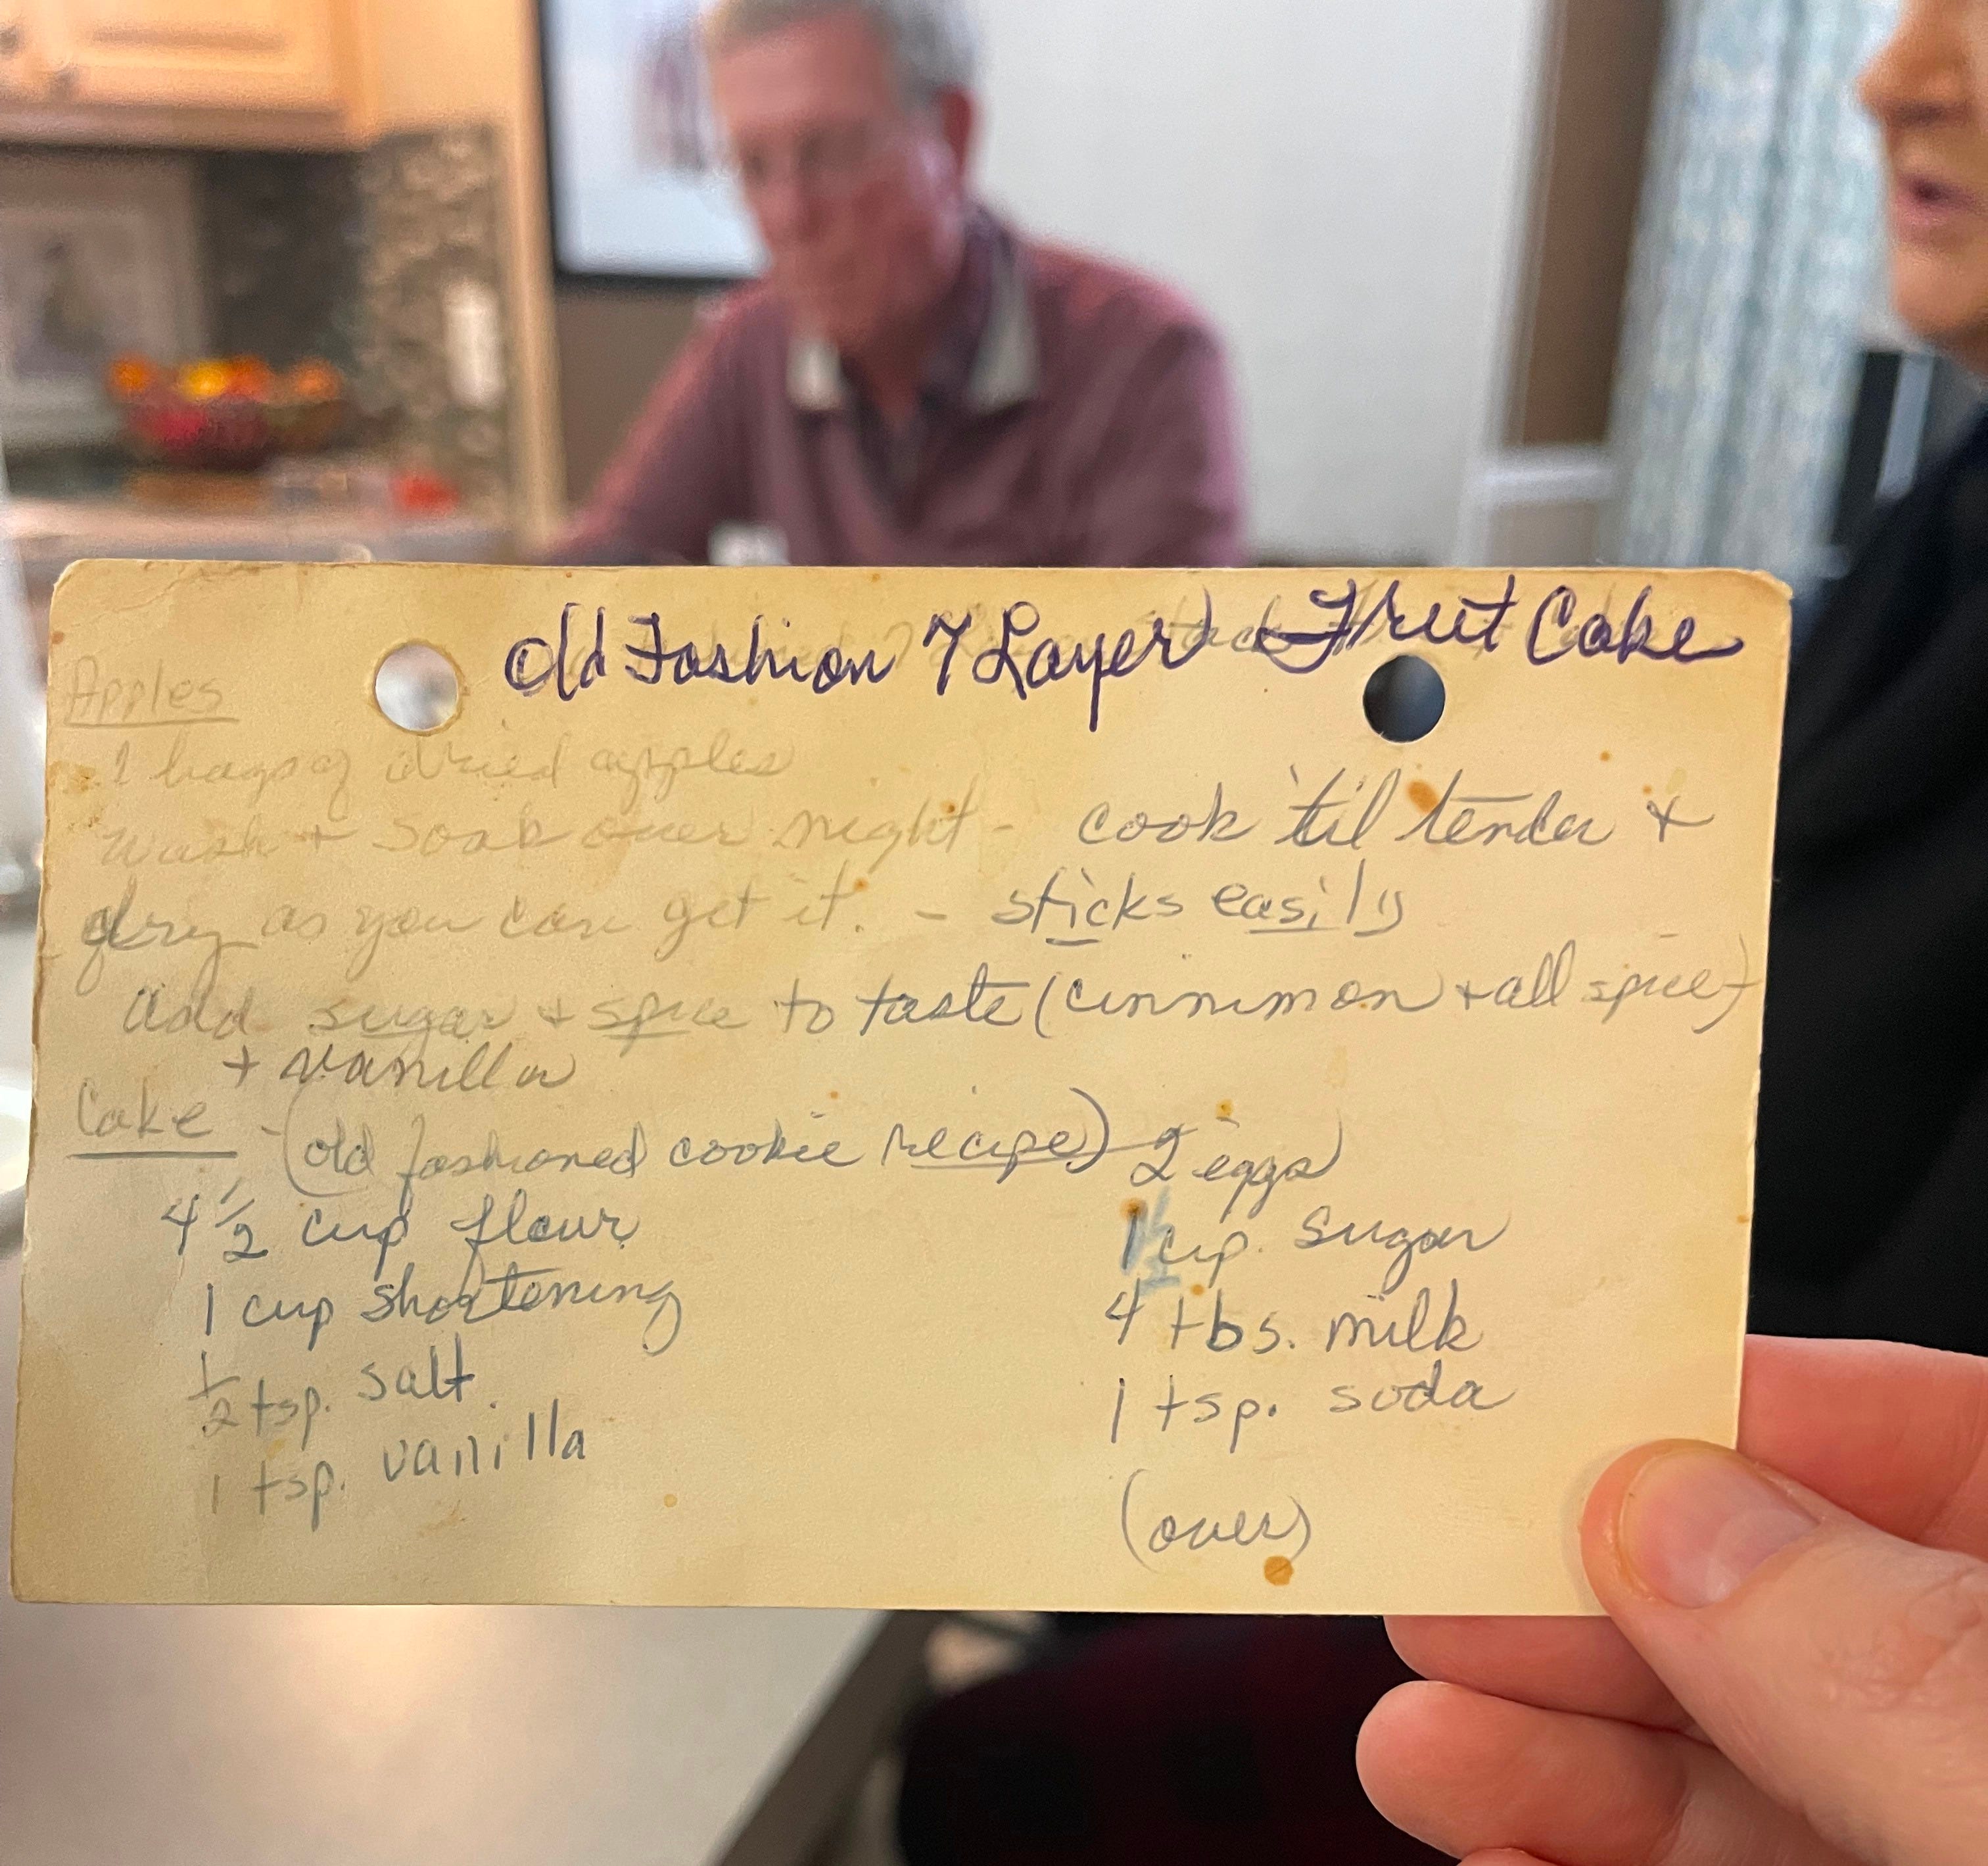 Old Fashion 7 Layer Fruit Cake
Apples
1 bags of dried apples
wash + soak over night - cook 'til tender +
dry as you can get it. - sticks easily
add sugar + spice to taste (cinnimon + all spice)
+ vanilla
Cake - (old fashioned cookie recipe) - 2 eggs
4 1/2 cup flour
1 1/2 cup sugar
1 cup shortening
4 tbs. milk
1/2 tsp. salt
1 tsp. soda
1 tsp. vanilla
(over)